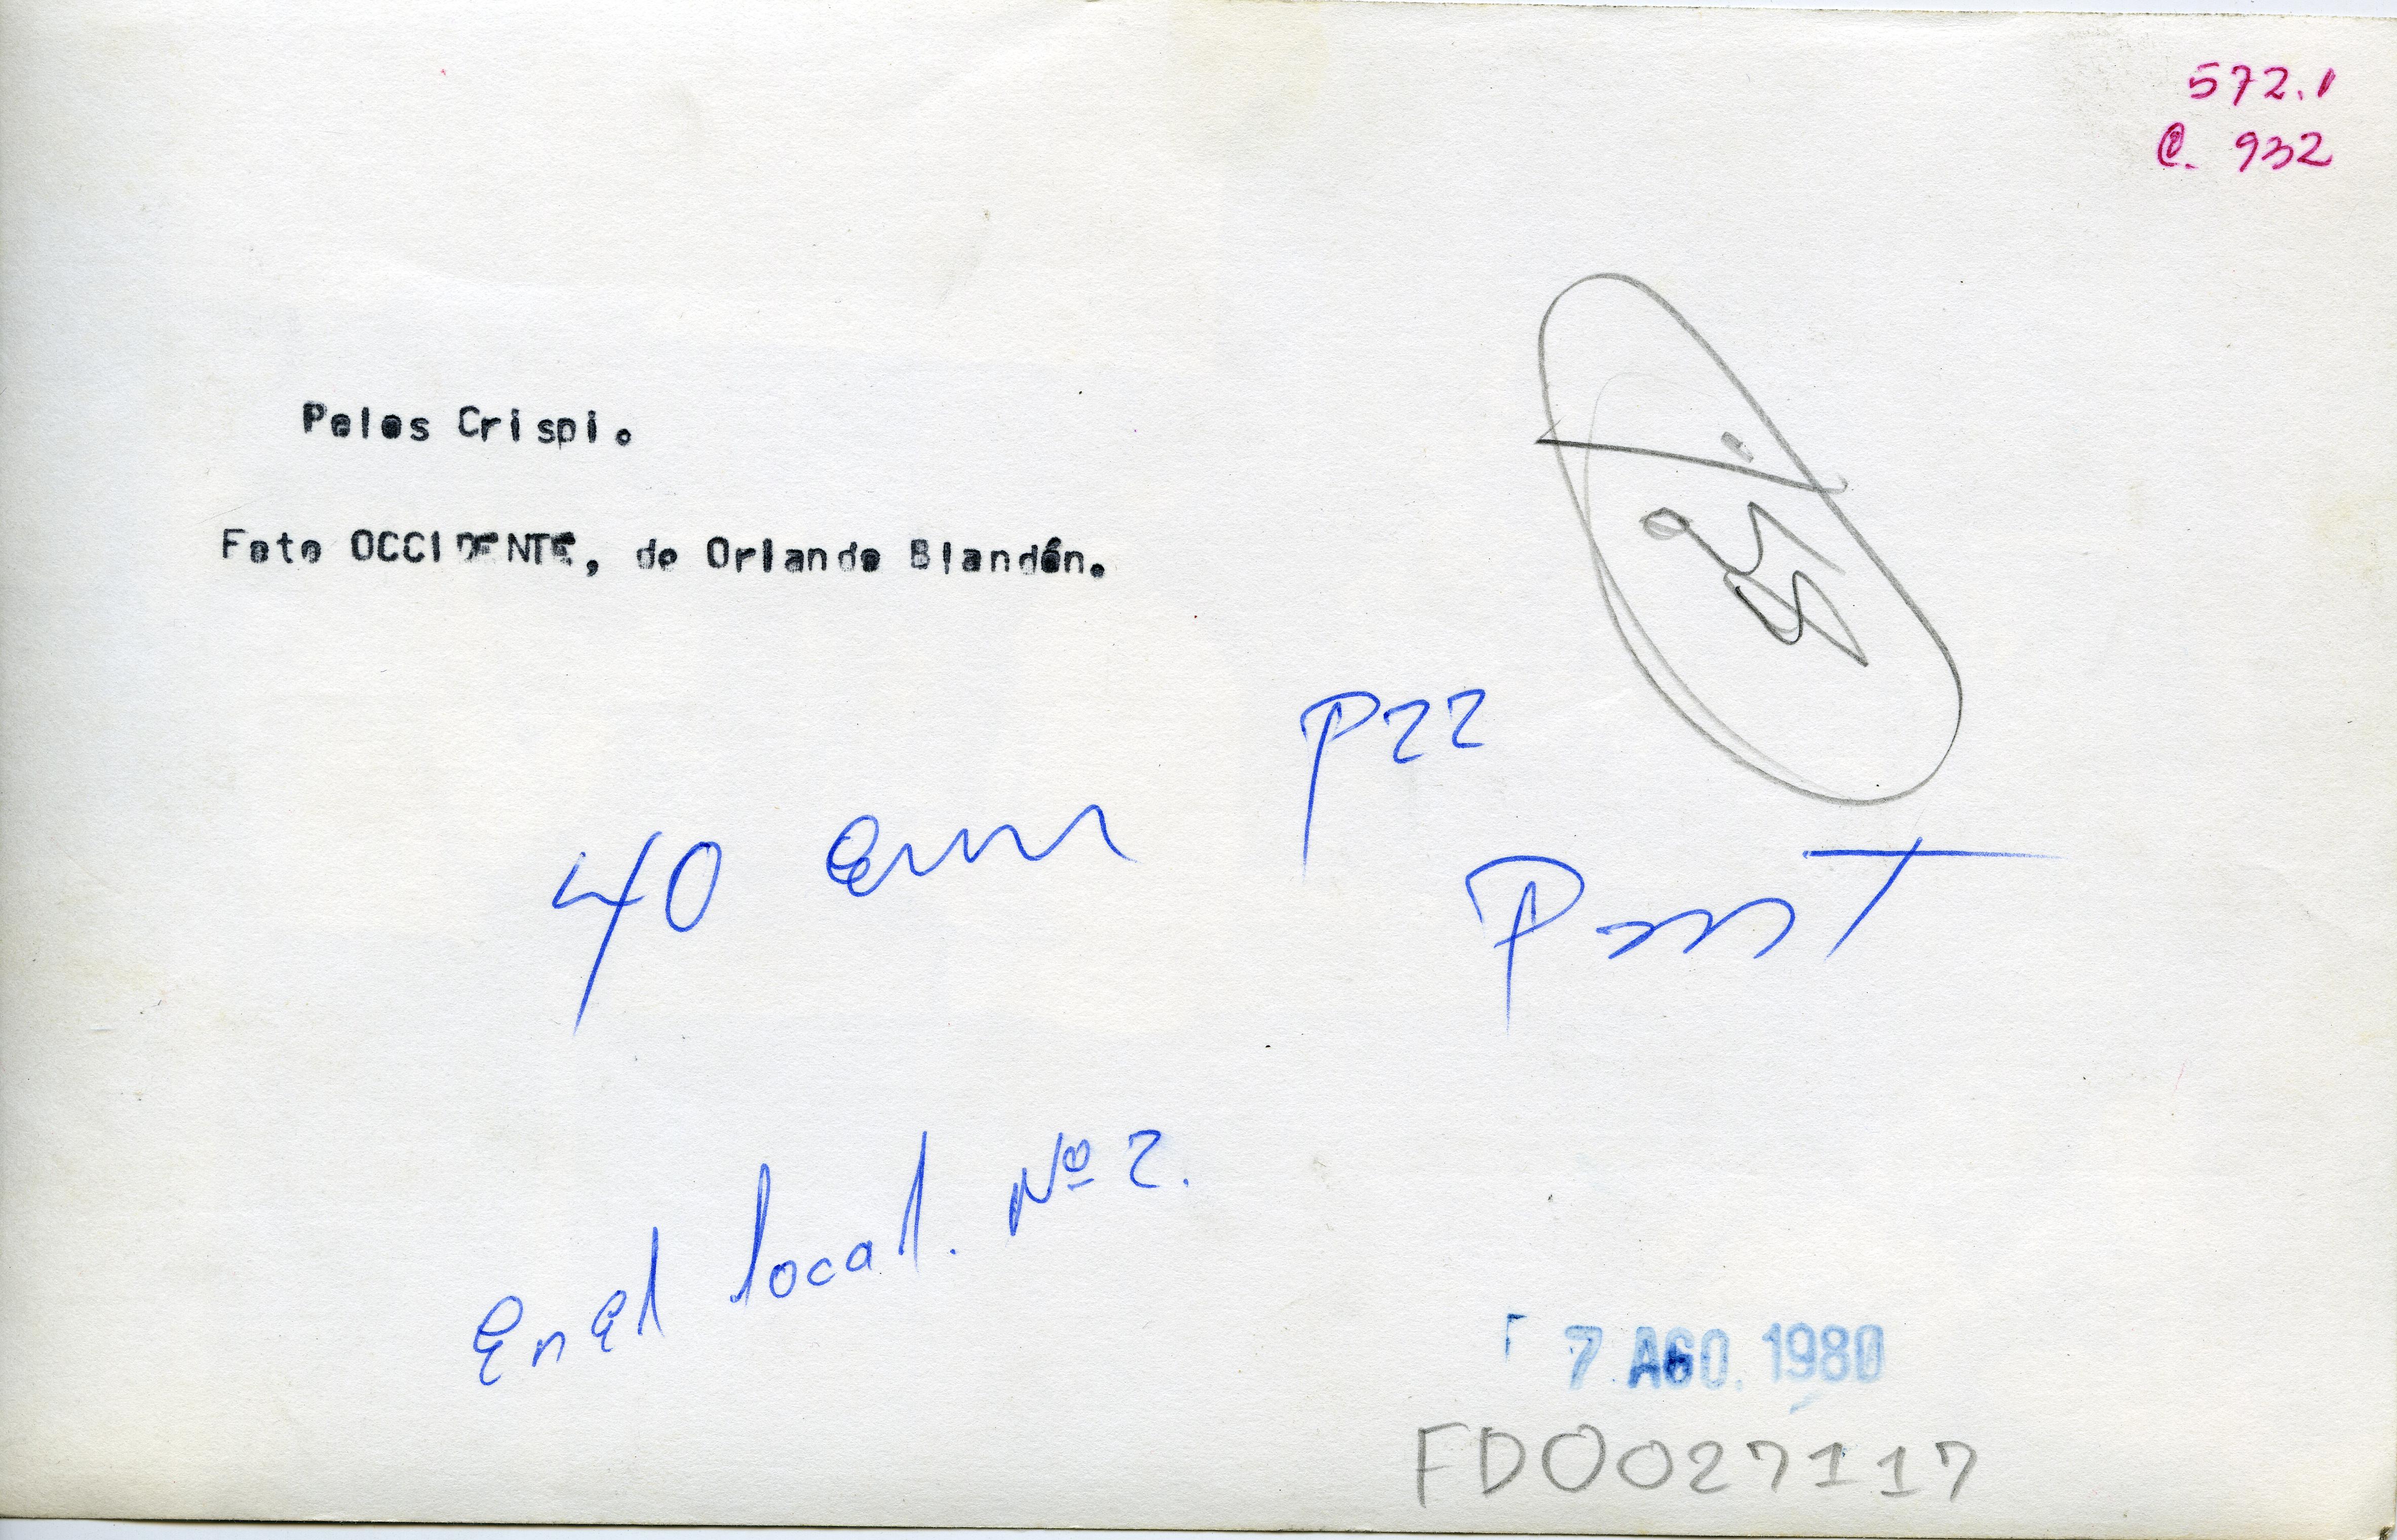 572.1
C. 932
Pelos Crispi.
Foto OCCIDENTE, de Orlando Blandón.
P22
40 em
En el local. Nº 2.
7 AGO. 1980
FD0027117